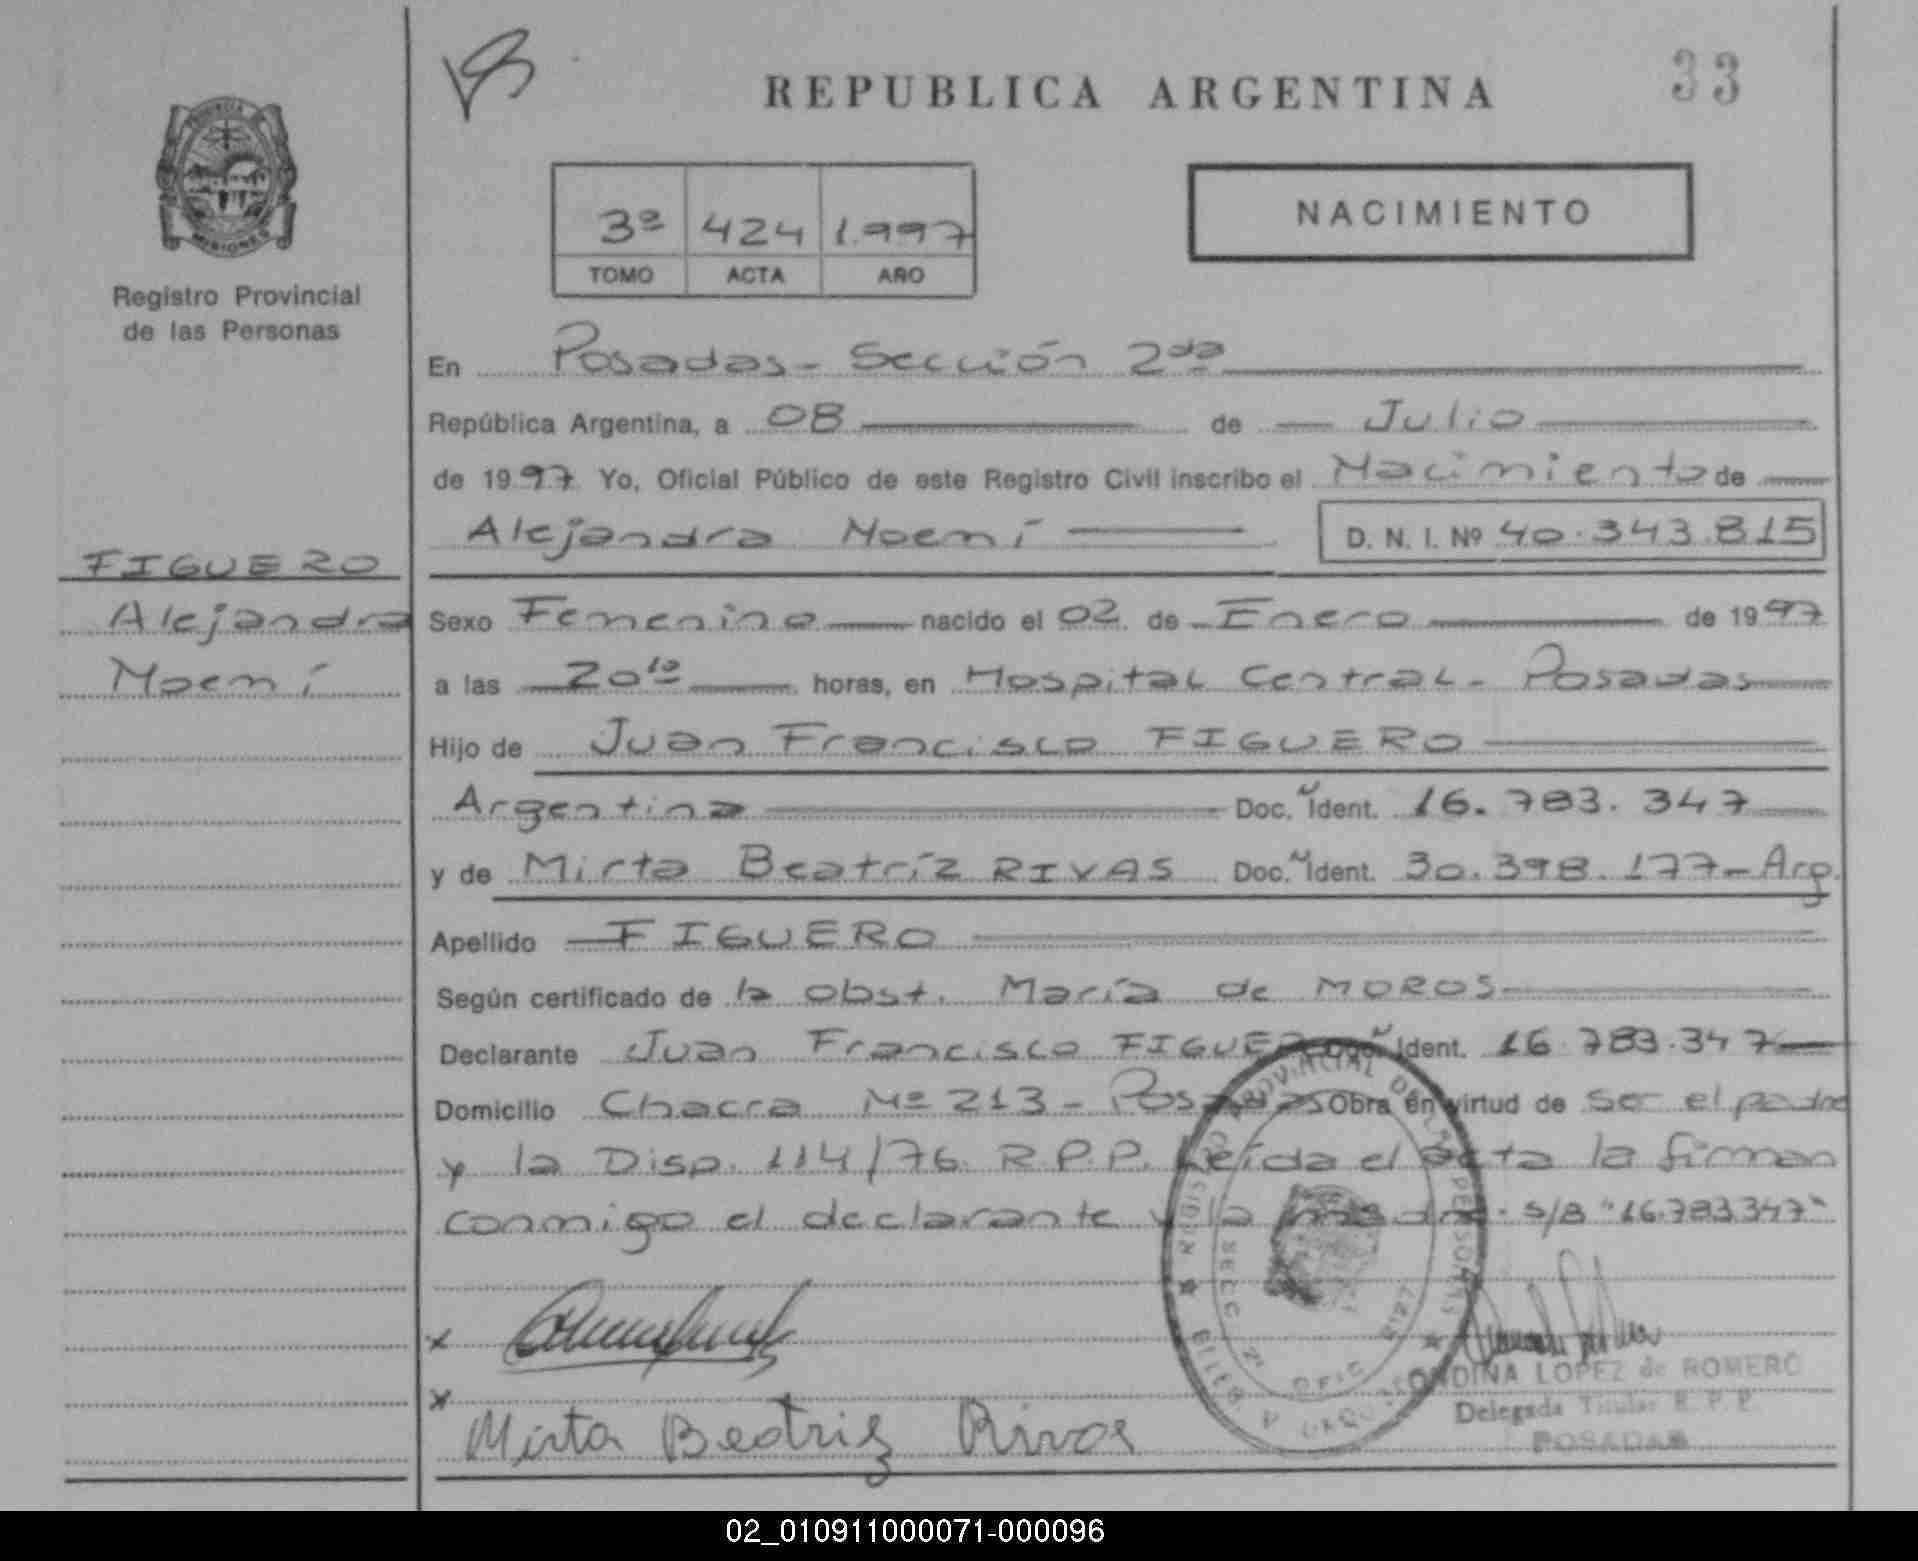 33
REPUBLICA ARGENTINA
PROVINCIA
MISIONES
Registro Provincial
de las Personas
3º 424 1.997
TOMO ACTA AÑO
NACIMIENTO
En Posadas - Sección 2da
República Argentina, a 08 de Julio
de 1997 Yo, Oficial Público de este Registro Civil inscribo el Nacimiento de
Alejandra Noemí D. N. I. Nº 40.343.815
FIGUERO
Alejandra
Noemí
Sexo Femenino nacido el 02 de Enero de 1997
a las 20 10 horas, en Hospital Central - Posadas
Hijo de Juan Francisco FIGUERO
Argentina Doc. Ident. 16.783.347
y de Mirta Beatríz RIVAS Doc. Ident. 30.398.177 - Arg.
Apellido FIGUERO
Según certificado de la obst. María de MOROS
Declarante Juan Francisco FIGUERO Doc. Ident. 16.783.347
Domicilio Chacra Nº 213 - Posadas Obra en virtud de ser el padre
y la Disp. 114/76. R.P.P. Leída el acta la firman
conmigo el declarante y la madre. S/B "16.783.347"
REGISTRO PROVINCIAL DE LAS PERSONAS
SECC 2ª
OFIC
x
x
Mirta Beatriz Rivas
ONDINA LOPEZ de ROMERO
Delegada Titular R. P. P.
POSADAS
02_010911000071-000096